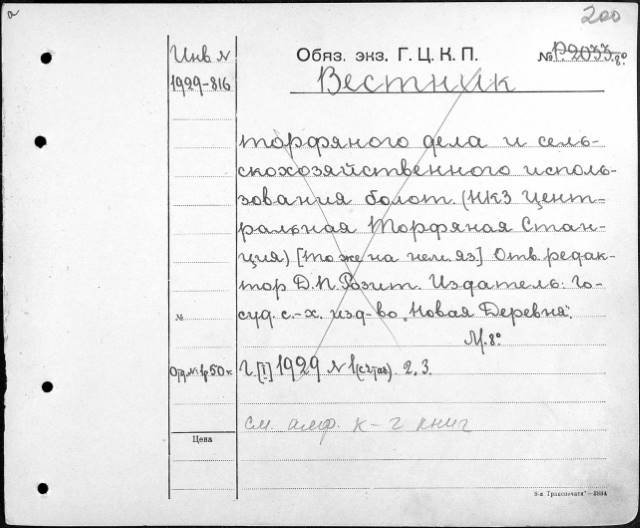 а
200
Инв. N
1929-816
Обяз. экз. Г. Ц. К. П.
№ Р. 2033. 8°
Вестник
торфяного дела и сель-
скохозяйственного исполь-
зования болот. (НКЗ Цент-
ральная Торфяная Стан-
ция) [то же на нем. яз] Отв. редак-
тор Д. П. Розит. Издатель: Го-
суд. с.-х. изд-во „Новая Деревня".
№
М. 8°
Отд. № 1р 50к
Г. [I] 1929 N 1 2. 3.
см. алф. к-г книг
Цена